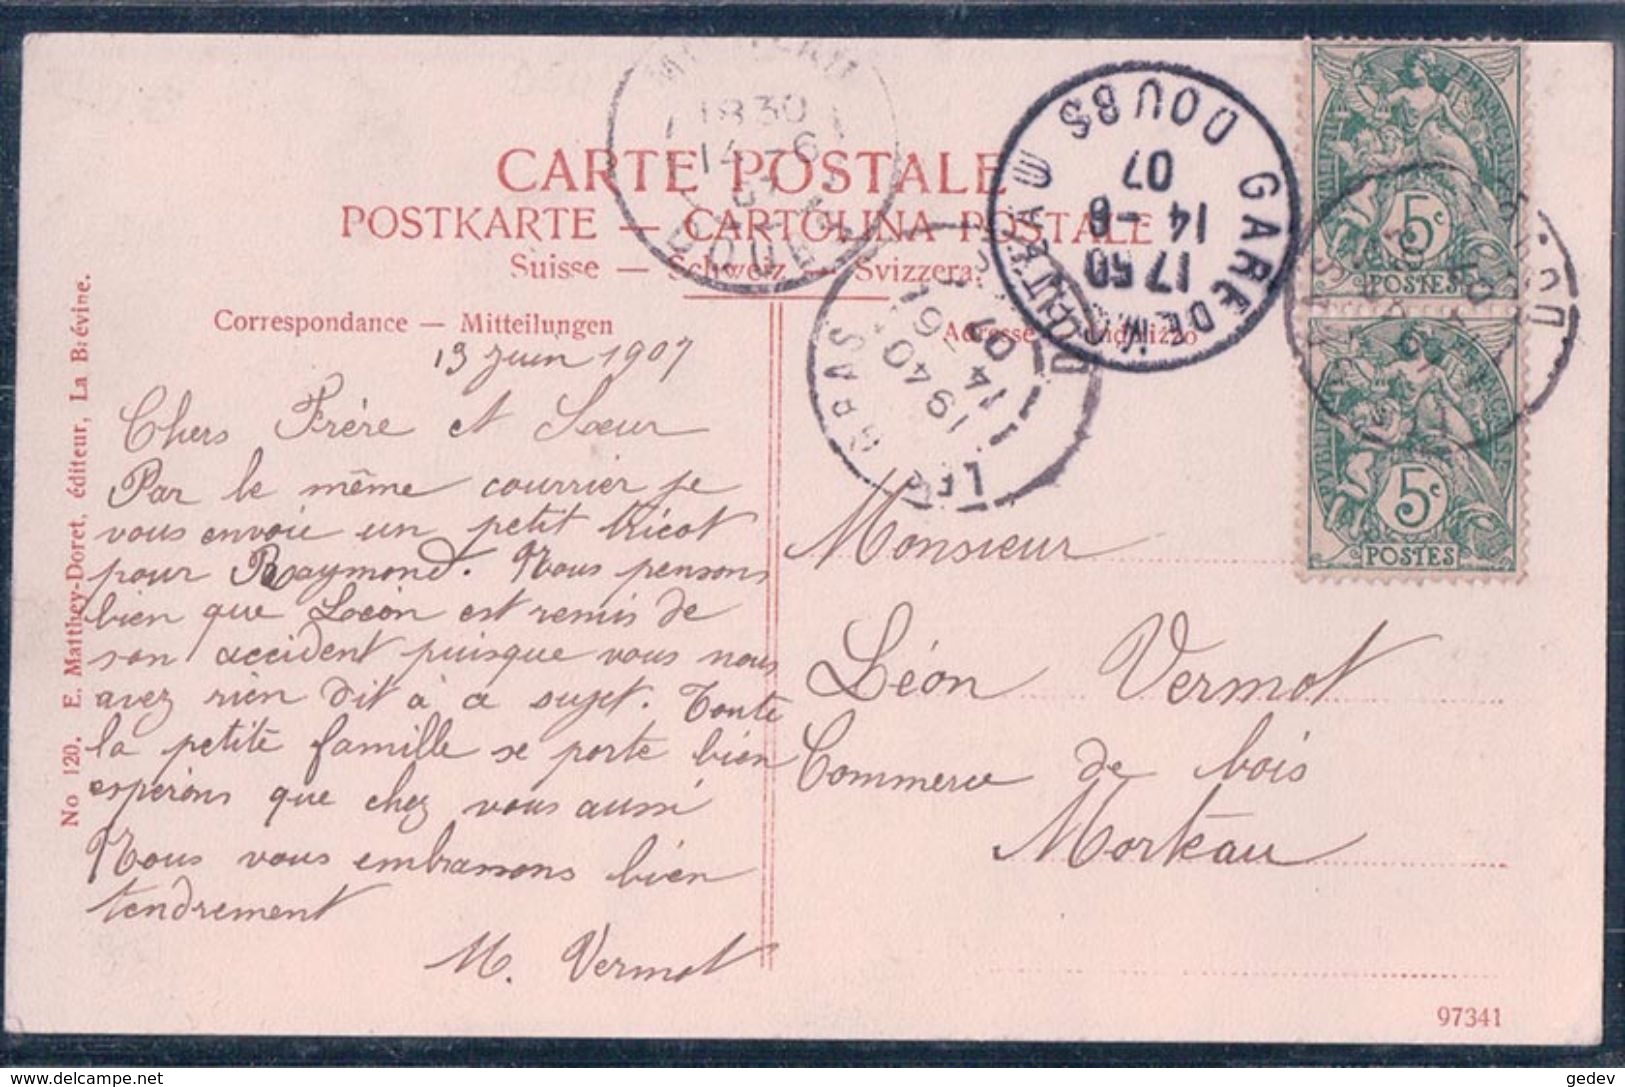 CARTE POSTALE
POSTKARTE — CARTOLINA POSTALE
Suisse — Schweiz — Svizzera.
Correspondance — Mitteilungen
No 120. E. Matthey-Doret, éditeur, La Brévine.
13 Juin 1907
Chers Frère et Sœur
Par le même courrier je
vous envoie un petit tricot
pour Raymond. Nous pensons
bien que Léon est remis de
son accident puisque vous nous
avez rien dit à ce sujet. Toute
la petite famille se porte bien
espérons que chez vous aussi
Nous vous embrassons bien
tendrement
M. Vermot
Monsieur
Léon Vermot
Commerce de bois
Morteau
97341
18 30
14 -6
07
DOUBS
GARE DE MORTEAU
DOUBS
17 50
14 -6
07
LE GRAS
19 40
14 -6
07
FRANÇAISE
5c
POSTES
5c
POSTES
delcampe.net
gedev